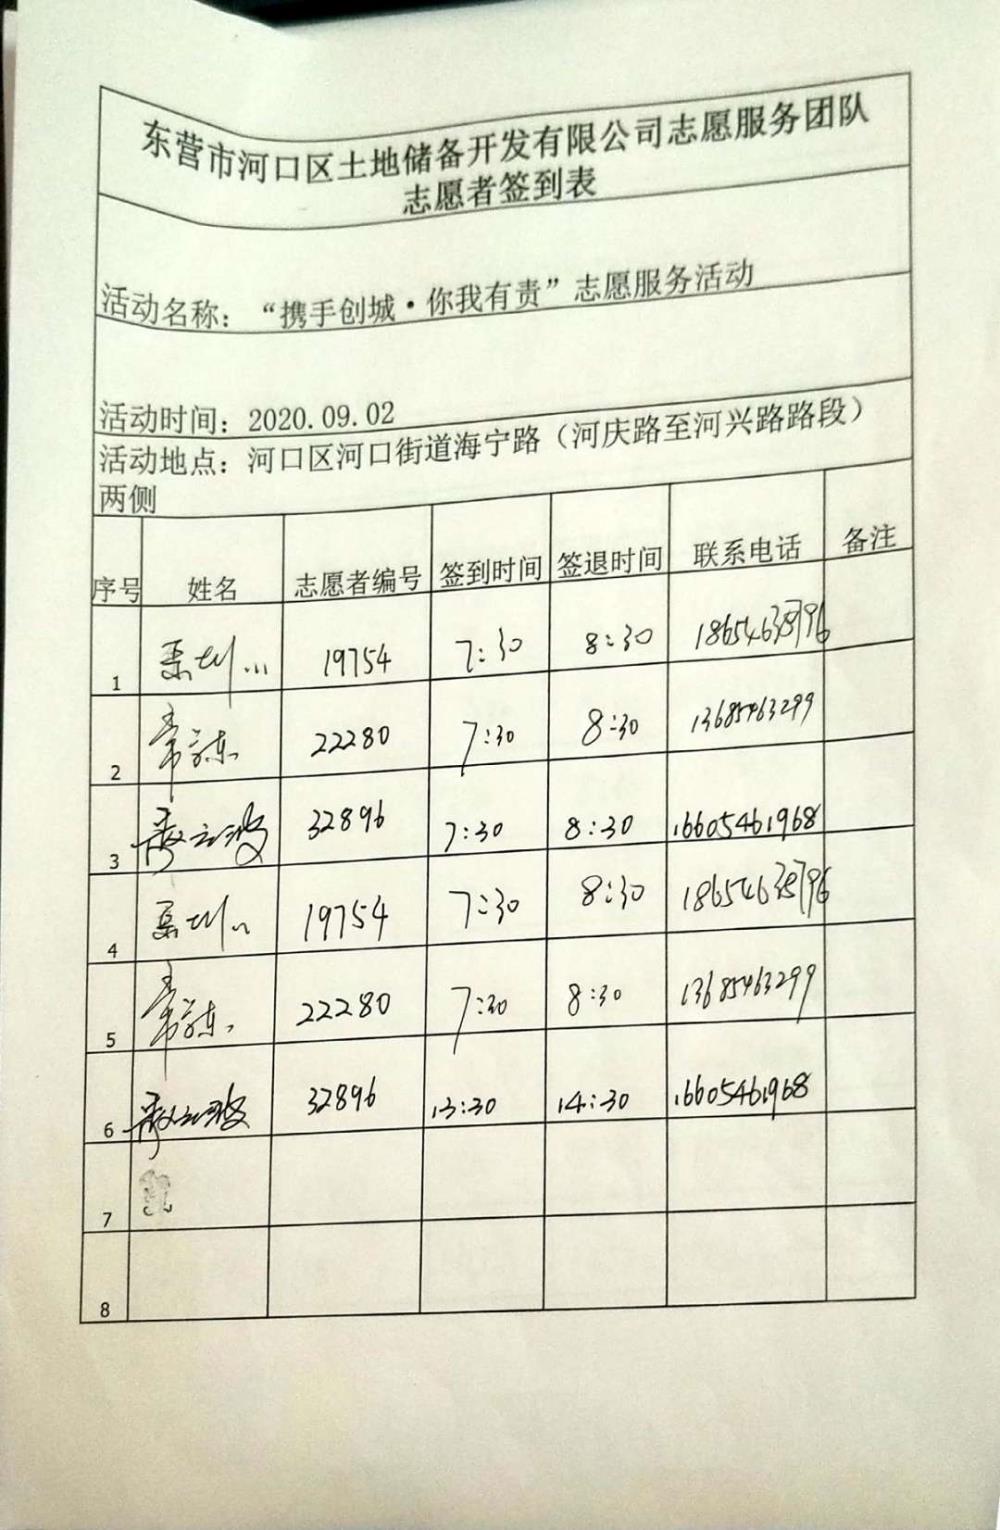 东营市河口区土地储备开发有限公司志愿服务团队
志愿者签到表
活动名称：“携手创城·你我有责”志愿服务活动
活动时间：2020.09.02
活动地点：河口区河口街道海宁路（河庆路至河兴路路段）
两侧
序号 姓名 志愿者编号 签到时间 签退时间 联系电话 备注
1 19754 7:30 8:30 18654638796
2 22280 7:30 8:30 13685463299
3 32896 7:30 8:30 16605461968
4 19754 7:30 8:30 18654638796
5 22280 7:30 8:30 13685463299
6 32896 13:30 14:30 16605461968
7
8